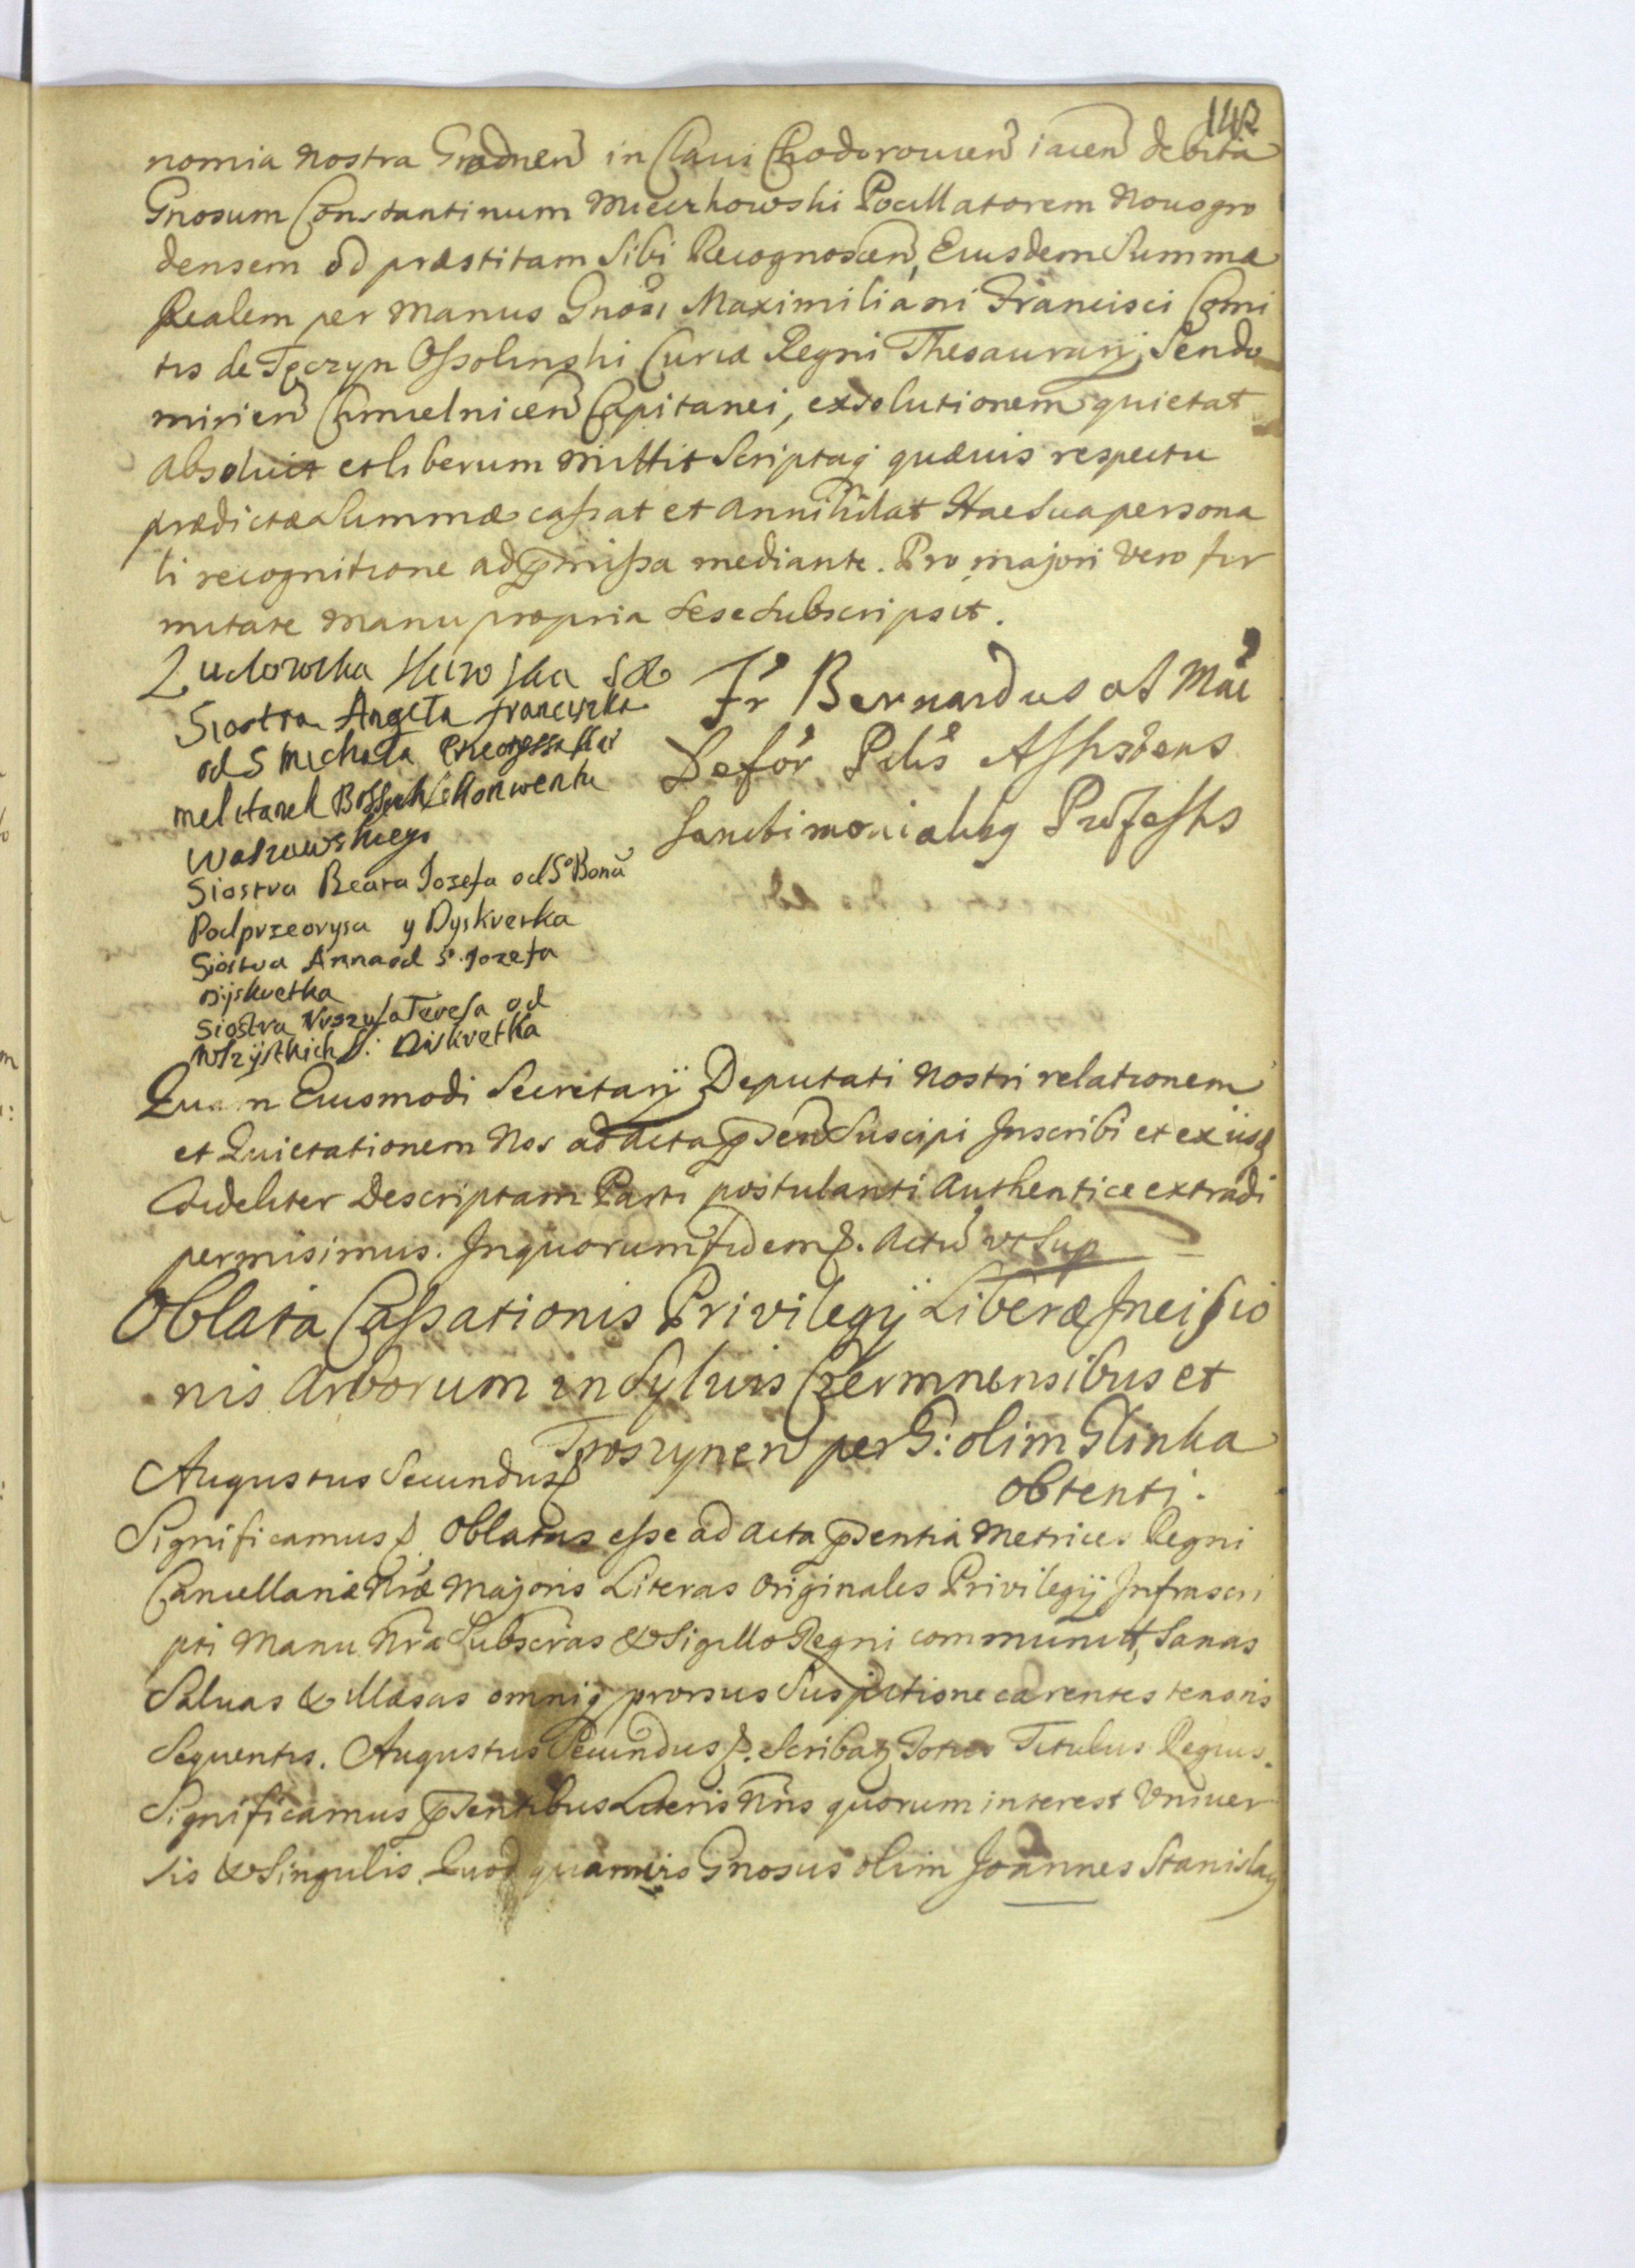 142
nomia Nostra Grodnen in Clavi Chodorowien iacen debita
Gnosum Constantinum Mieirhowski Pocillatorem Novogro
densem od præstitam Sibi Recognoscen, Eiusdem Summæ
Realem per Manus Gnosi Maximiliani Francisci Comi
tis de Tęczyn Ossolinski Curiæ Regni Thesaurarij, Sendo
mirien Chmielnicen Capitanei, exsolutionem quietat
absoluit et liberum mittit Scriptaq quævis respectu
prædictæ Summæ cassat et annihilat Hac Sua persona
li recognitione ad præmissa mediante. Pro majori Vero fir
mitate manu propria Sese Subscripsit.
Siostra Angela Franciszka
od S Michała Przeoryssa Kar
melitanek Bossych Konwentu
Siostra Beata Jozefa od S° Bona
Podprzeorysa y Dyskretka
Siostra Anna od S. Jozefa
Dijskretka
Siostra Vrszula Teresa od
Wszÿstkich S: Diskretka
Fr Bernardus a S Mae
Defor Plis Assistens
Sanctimonialibq Professis
Quam Eiusmodi Secretarÿ Deputati Nostri relationem
et Quietationem Nos ad Acta pnsen Suscipi Inscribi et ex iisq
fideliter Descriptam Parti postulanti Authentice extradi
permisimus. In quorum fidem p. Actu vt Sup
Oblata Cassationis Privilegij Liberæ Incisio
nis Arborum in Sylvis Czermnensibus et
Troszynen per G: olim Glinka
obtenti.
Augustus Secundus p
Significamus p. Oblatas esse ad Acta pnsentia Metrices Regni
Cancellariæ Nræ Majoris Literas Originales Privilegij Infrascri
pti Manu Nra Subscras & Sigillo Regni communit, Sanas
Saluas & illæsas omniq prorsus Suspicione carentes tenoris
Sequentis. Augustus Secundus p. Scribatq Totus Titulus Regius.
Significamus pnsentibus Literis Nris quorum interest Vniver
sis & Singulis. Quod quamvis Gnosus olim Joannes Stanislaq